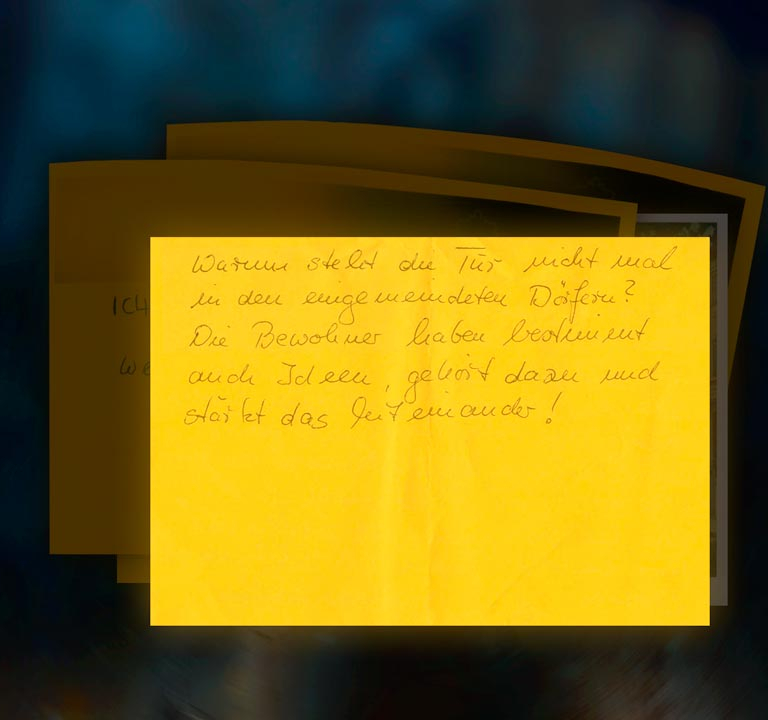 Warum steht die Tür nicht mal
in den eingemeindeten Dörfern?
Die Bewohner haben bestimmt
auch Ideen, gehört dazu und
stärkt das Miteinander!
ICH
we